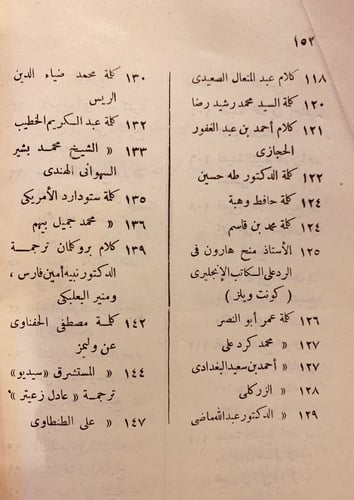 ١٥٢
١١٨ كلام عبد المتعال الصعيدى
١٢٠ كلمة السيد محمد رشيد رضا
١٢١ كلام أحمد بن عبد الغفور
الحجازى
١٢٢ كلمة الدكتور طه حسين
١٢٤ كلمة حافظ وهبة
١٢٤ كلمة محمد بن قاسم
١٢٥ الأستاذ منح هارون فى
الرد على الكاتب الإنجليزى
( كونت ويلز )
١٢٦ كلمة عمر أبو النصر
١٢٧ » محمد كرد على
١٢٧ » أحمد بن سعيد البغدادى
١٢٨ » الزركلى
١٢٩ » الدكتور عبد الله ماضى
١٣٠ كلمة محمد ضياء الدين
الريس
١٣٢ كلمة عبد الكريم الخطيب
١٣٣ » الشيخ محمد بشير
السهوانى الهندى
١٣٥ كلمة ستودارد الأمريكى
١٣٦ » محمد جميل بيهم
١٣٩ كلام بروكلمان ترجمة
الدكتور نبيه أمين فارس ،
ومنير البعلبكى
١٤٢ كلمة مصطفى الحفناوى
عن وليمز
١٤٤ » المستشرق «سيديو»
ترجمة « عادل زعيتر »
١٤٧ » على الطنطاوى